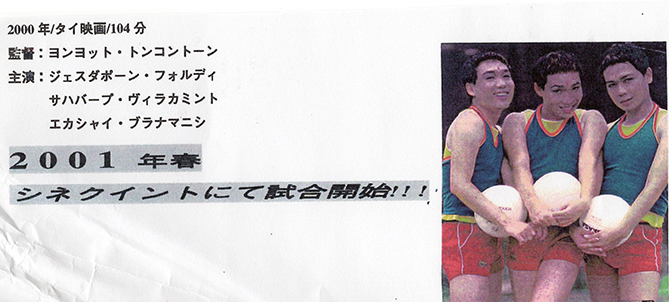 2000 年/タイ映画/104 分
監督：ヨンヨット・トンコントーン
主演：ジェスダポーン・フォルディ
サハバープ・ヴィラカミント
エカシャイ・ブラナマニシ
２００１ 年春
シネクイントにて試合開始!!!